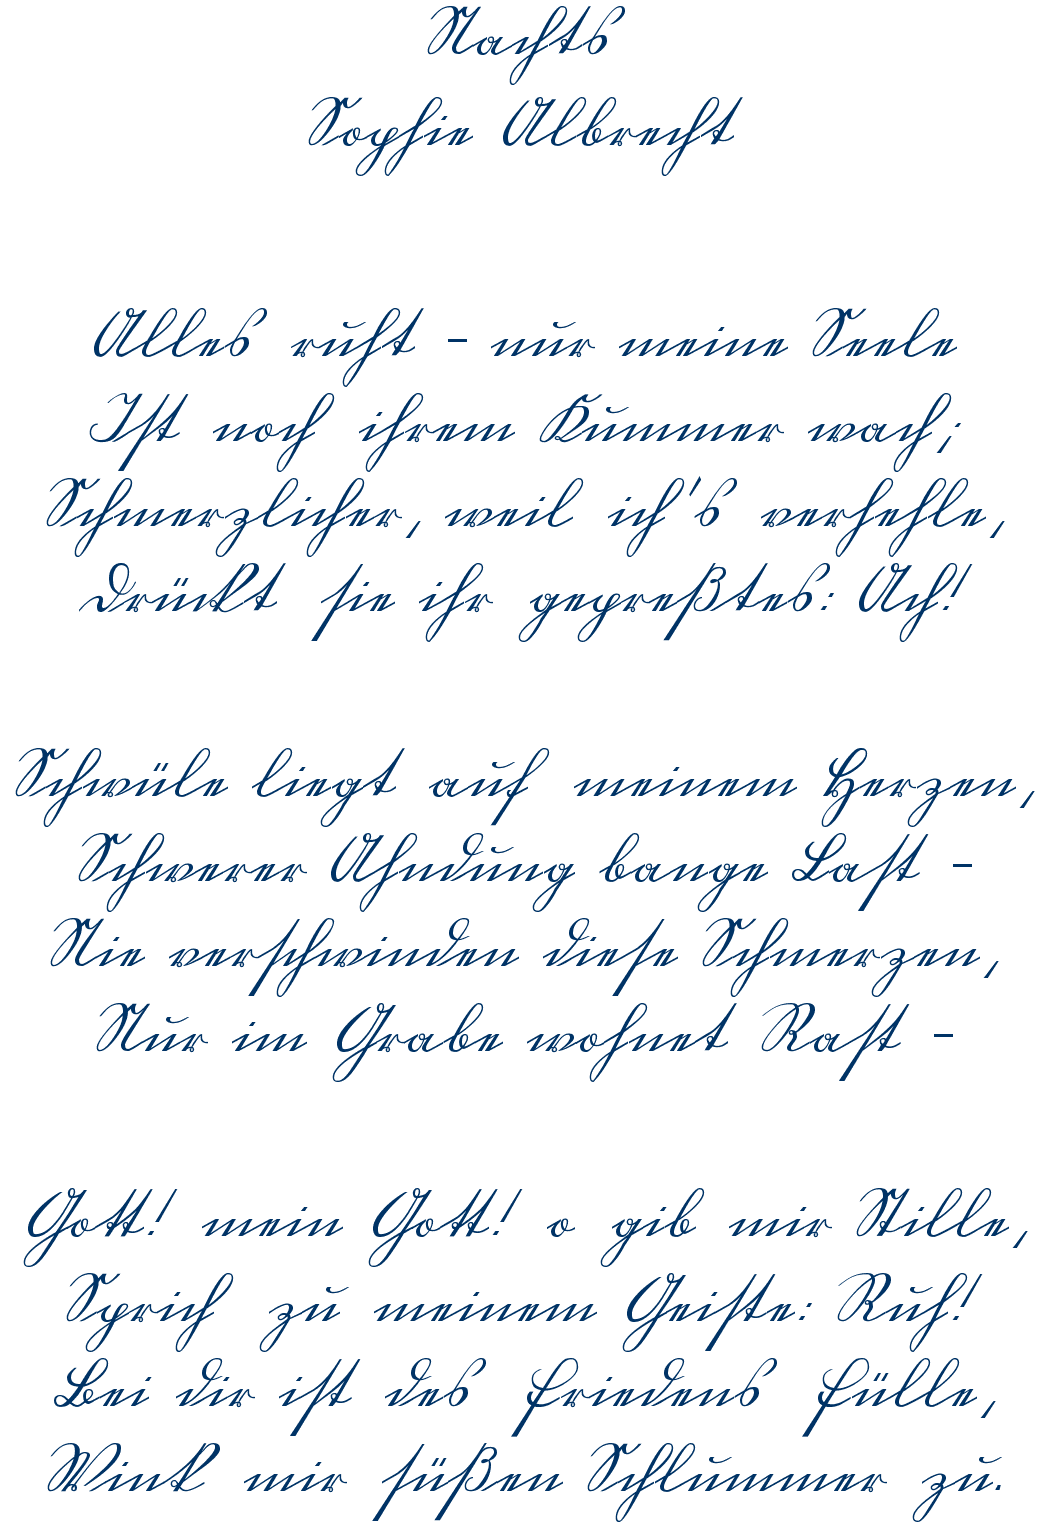 Nachts
Sophie Albrecht
Alles ruht - nur meine Seele
Ist noch ihrem Kummer wach;
Schmerzlicher, weil ich's verhehle,
Drückt sie ihr gepreßtes: Ach!
Schwüle liegt auf meinem Herzen,
Schwerer Ahndung bange Last -
Nie verschwinden diese Schmerzen,
Nur im Grabe wohnet Rast -
Gott! mein Gott! o gib mir Stille,
Sprich zu meinem Geiste: Ruh!
Bei dir ist des Friedens Fülle,
Wink mir süßen Schlummer zu.